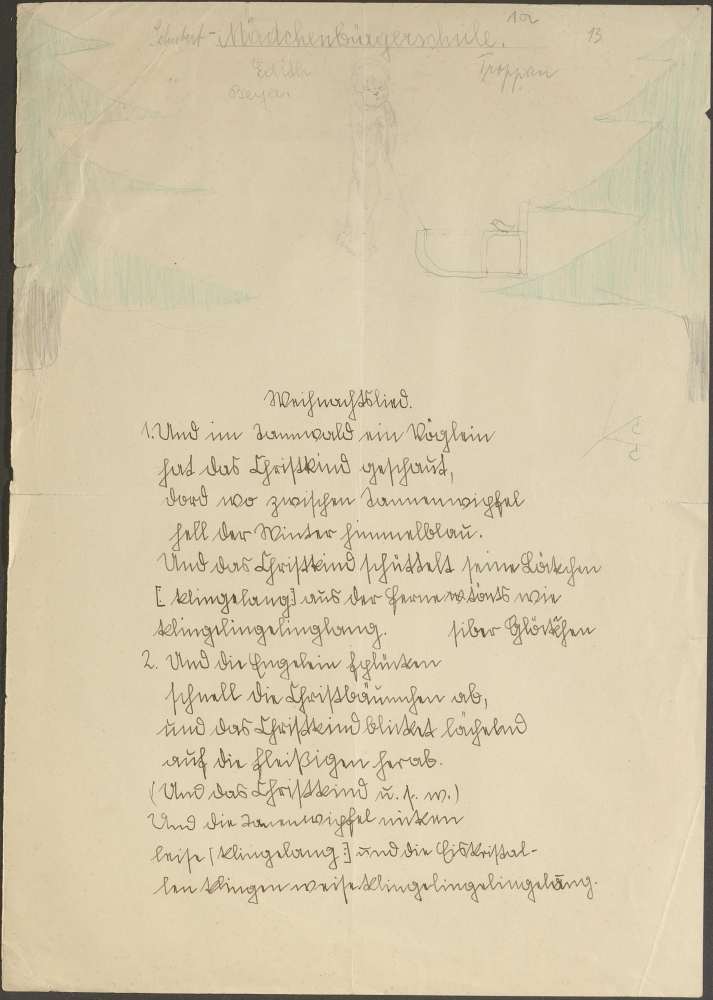 Schubert - Mädchenbürgerschule.
13
Edith
Troppau
Weihnachtslied.
1. Und im Tannwald ein Vöglein
hat das Christkind geschaut,
dord wo zwischen Tannenwipfel
hell der Winter himmelblau.
Und das Christkind schüttelt seine Löckchen
[klingelang] aus der Ferne tönts wie
klingelingelinglang. siber Glöckchen
2. Und die Engelein pflücken
schnell die Christbäumchen ab,
und das Christkind blicket lächelnd
auf die fleißigen herab.
(Und das Christkind u. s. w.)
Und die Tanenwipfel nicken
leise [klingelang:] und die Eiskristal-
len klingen weise klingelingelingelang.